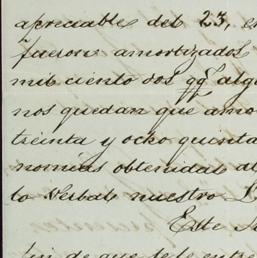 apreciable del 23, en
fueron amortizados
mil ciento dos qq.ˢ alg
nos quedan que amo
treinta y ocho quinta
nomías obtenidas al
lo verbal nuestro
Este
fin de que se le entre